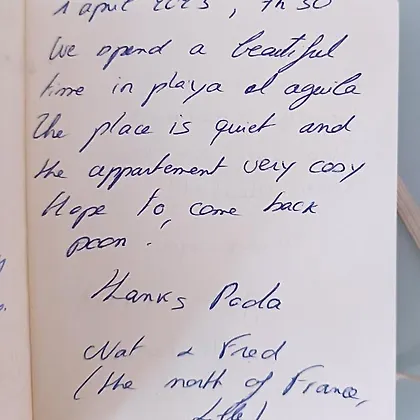 1 april 2023, 7h30
We spend a beautiful
time in playa el aguila
The place is quiet and
the appartement very cosy
Hope to come back
soon!
Thanks Pada
Nat & Fred
(the north of France,
Lille)